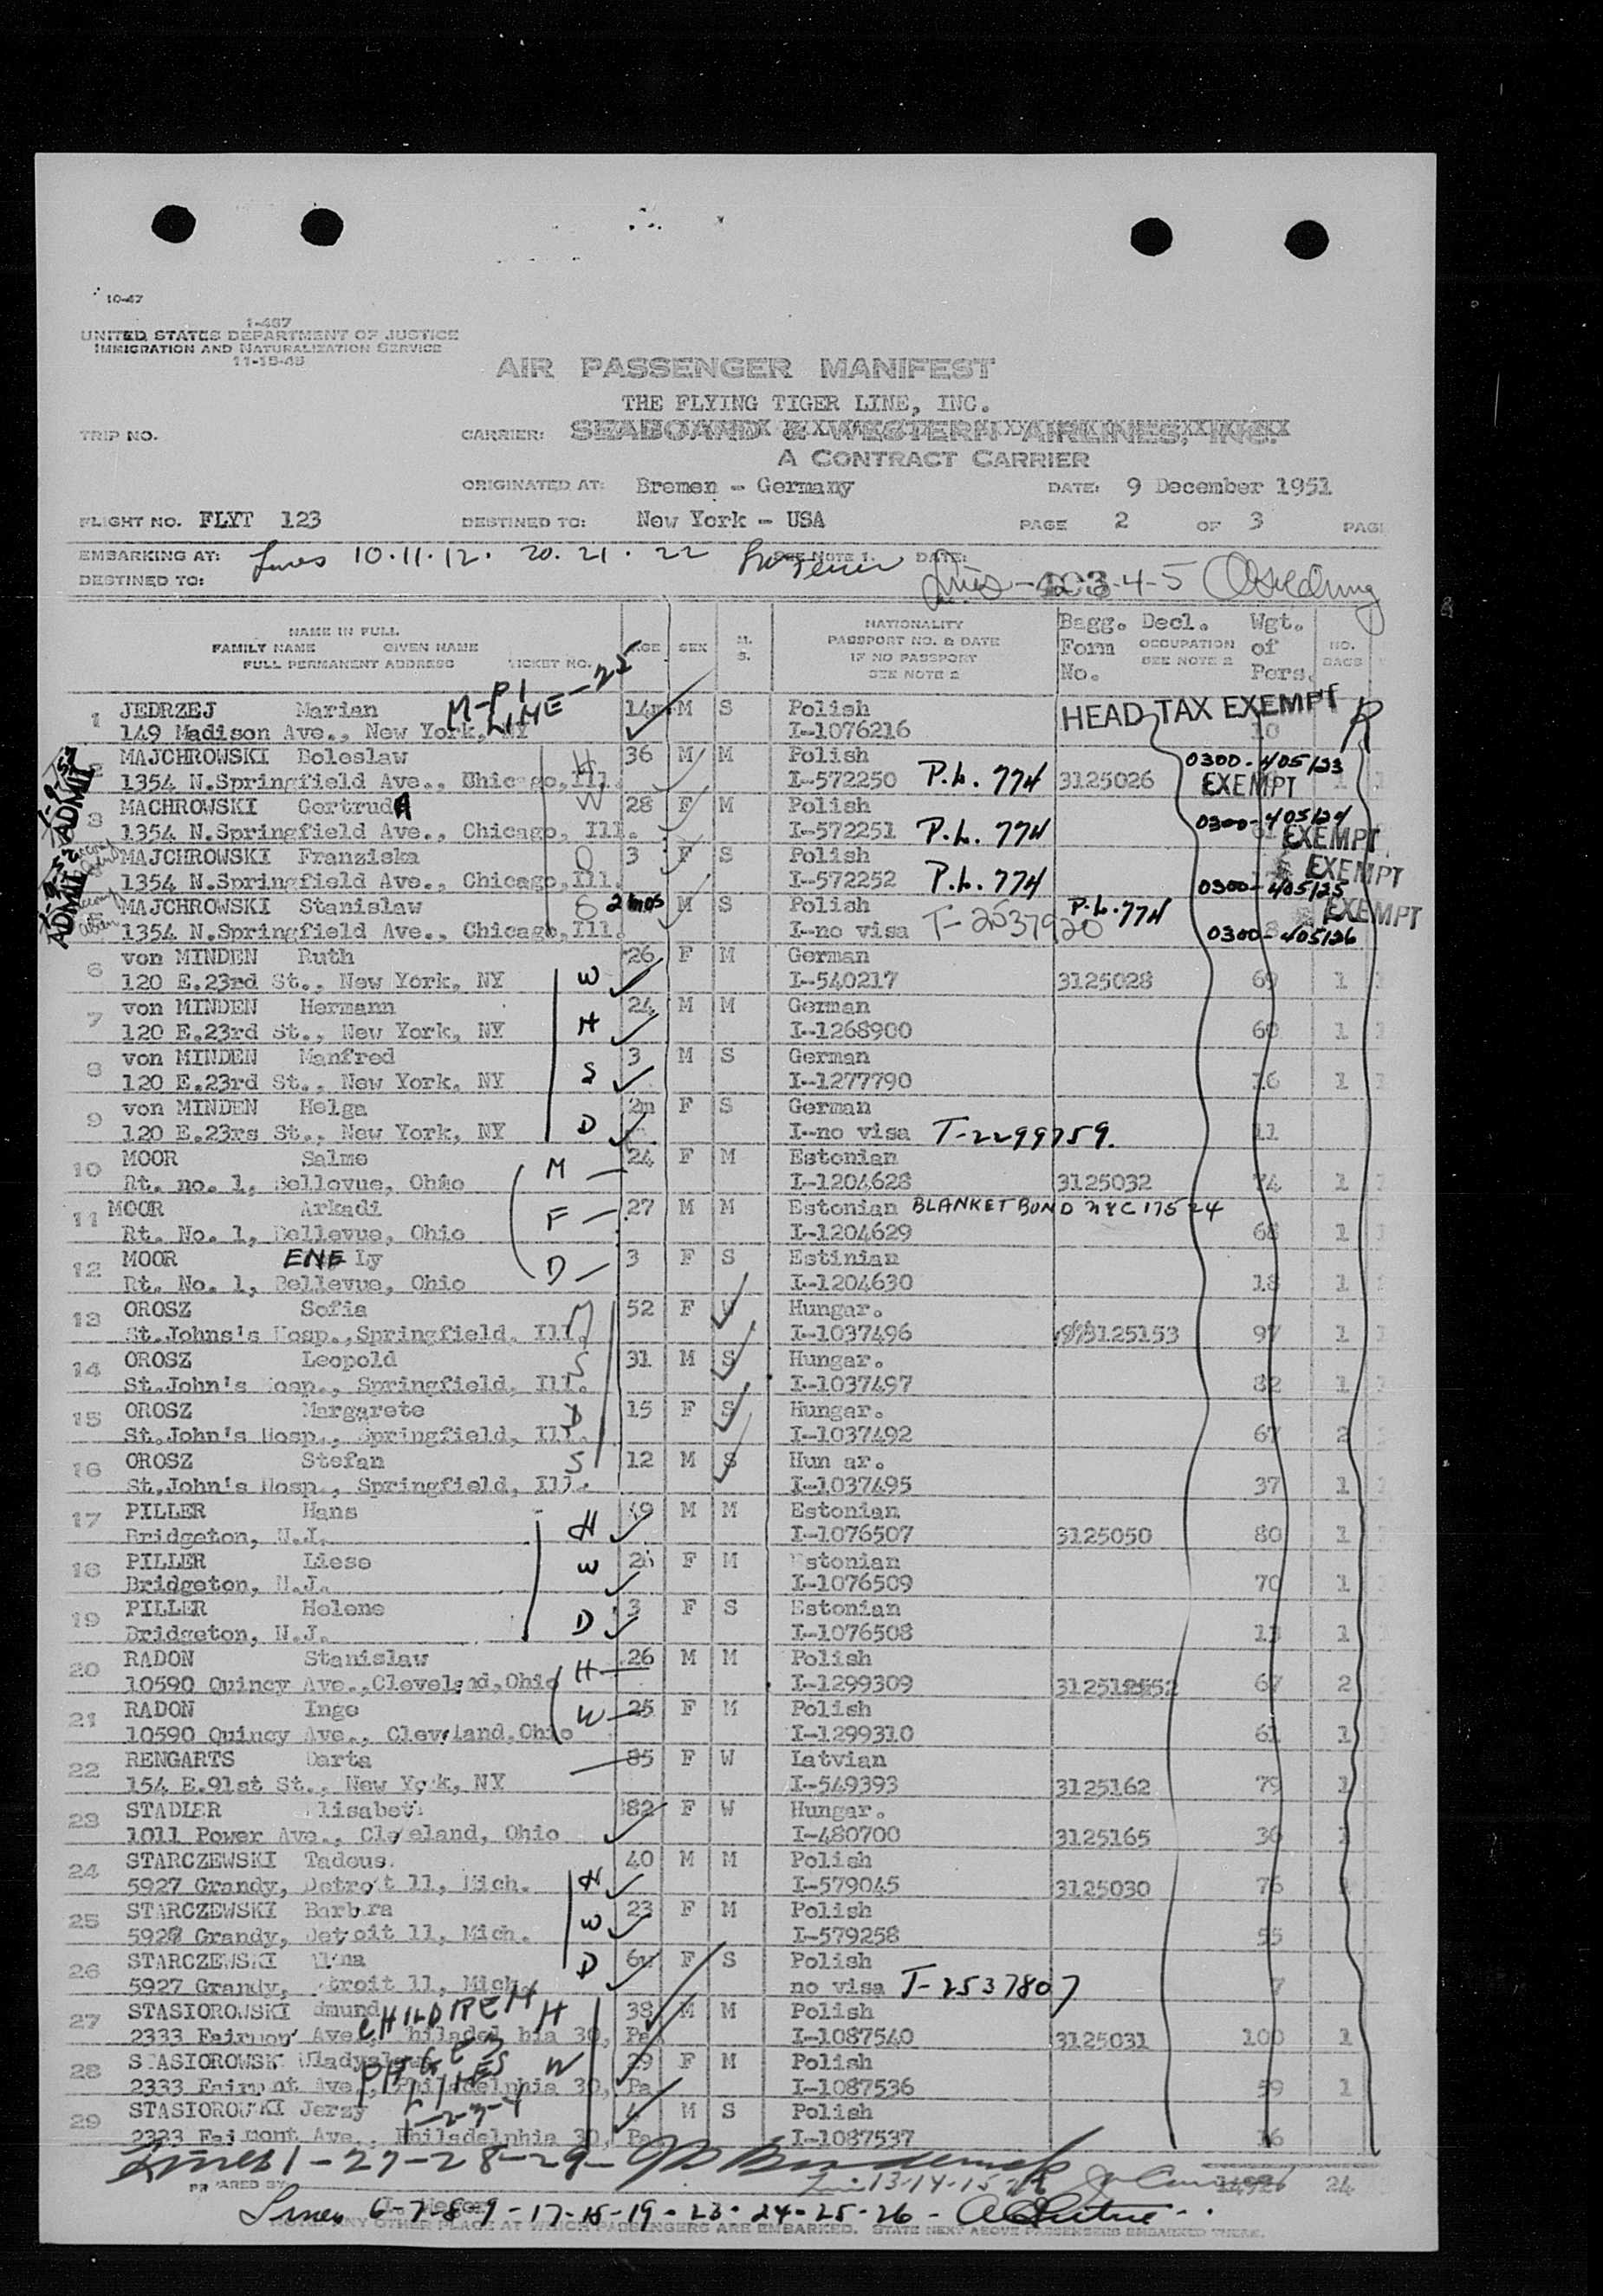 10-47
I-467
UNITED STATES DEPARTMENT OF JUSTICE
IMMIGRATION AND NATURALIZATION SERVICE
11-15-45
AIR PASSENGER MANIFEST
THE FLYING TIGER LINE, INC.
TRIP NO. CARRIER: SEABOARD & WESTERN AIRLINES, INC.
A CONTRACT CARRIER
ORIGINATED AT: Bremen - Germany DATE: 9 December 1951
FLIGHT NO. FLYT 123 DESTINED TO: New York - USA PAGE 2 OF 3 PAG
EMBARKING AT: Lines 10.11.12. 20.21.22 SEE NOTE 1. DATE:
DESTINED TO: 3-4-5
NAME IN FULL
FAMILY NAME GIVEN NAME
FULL PERMANENT ADDRESS TICKET NO. AGE SEX M. S.
NATIONALITY
PASSPORT NO. & DATE
IF NO PASSPORT
SEE NOTE 2
Bagg. Decl. Wgt.
Form OCCUPATION of NO.
No. SEE NOTE 2 Pers. BAGS
M-P1
LINE-25
1 JEDRZEJ Marian 14m M S Polish HEAD TAX EXEMPT R
149 Madison Ave., New York, NY I-1076216 10
2 MAJCHROWSKI Boleslaw H 36 M M Polish 0300-405123
1354 N.Springfield Ave., Chicago,Ill. I-572250 P.L. 774 3125026 EXEMPT 1
ADMIT
3 MACHROWSKI GertrudA W 28 F M Polish 0300-405124
1354 N.Springfield Ave., Chicago, Ill. I-572251 P.L. 774 EXEMPT
MAJCHROWSKI Franziska D 3 F S Polish EXEMPT
1354 N.Springfield Ave., Chicago,Ill. I-572252 P.L. 774 0300-405125
ADMIT
MAJCHROWSKI Stanislaw S 2 mos M S Polish P.L. 774 EXEMPT
1354 N.Springfield Ave., Chicago,Ill. I-no visa T-2537920 8 0300-405126
6 von MINDEN Ruth 26 F M German
120 E.23rd St., New York, NY W I-540217 3125028 69 1
7 von MINDEN Hermann 24 M M German
120 E.23rd St., New York, NY H I-1268900 60 1
8 von MINDEN Manfred 3 M S German
120 E.23rd St., New York, NY S I-1277790 16 1
9 von MINDEN Helga 2m F S German
120 E.23rs St., New York, NY D I-no visa T-2299759. 11
10 MOOR Salme M 24 F M Estonian
Rt. no. 1, Bellevue, Ohio I-1204628 3125032 74 1
11 MOOR Arkadi F 27 M M Estonian BLANKET BOND NYC 17524
Rt. No. 1, Bellevue, Ohio I-1204629 68 1
12 MOOR ENE Ly D 3 F S Estinian
Rt. No. 1, Bellevue, Ohio I-1204630 18 1
13 OROSZ Sofia M 52 F W Hungar.
St.Johns's Hosp.,Springfield, Ill. I-1037496 3125153 97 1
14 OROSZ Leopold S 31 M S Hungar.
St.John's Hosp., Springfield, Ill. I-1037497 82 1
15 OROSZ Margarete D 15 F S Hungar.
St.John's Hosp., Springfield, Ill. I-1037492 67 2
16 OROSZ Stefan S 12 M S Hun ar.
St.John's Hosp., Springfield, Ill. I-1037495 37 1
17 PILLER Hans H 49 M M Estonian
Bridgeton, N.J. I-1076507 3125050 80 1
18 PILLER Liese W 26 F M Estonian
Bridgeton, N.J. I-1076509 70 1
19 PILLER Helene D 3 F S Estonian
Bridgeton, N.J. I-1076508 13 1
20 RADON Stanislaw H 26 M M Polish
10590 Quincy Ave.,Cleveland,Ohio I-1299309 67 2
21 RADON Inge W 25 F M Polish
10590 Quincy Ave., Cleveland,Ohio I-1299310 61 1
22 RENGARTS Darta 85 F W Latvian
154 E.91st St., New York, NY I-549393 3125162 79 1
23 STADLER lisabeth 82 F W Hungar.
1011 Power Ave., Cleveland, Ohio I-480700 3125165 36
24 STARCZEWSKI Tadeus. 40 M M Polish
5927 Grandy, Detroit 11, Mich. H I-579045 3125030 76
25 STARCZEWSKI Barbara 23 F M Polish
5927 Grandy, Detroit 11, Mich. W I-579258 55
26 STARCZEWSKI F S Polish
5927 Grandy, Detroit 11, Mich. D no visa T-2537807 7
27 STASIOROWSKI Edmund CHILDREN H 38 M M Polish
2333 Fairmont Ave., Philadelphia 30, Pa I-1087540 3125031 100 1
28 STASIOROWSKI Wladyslawa PAGE 3 W 29 F M Polish
2333 Fairmont Ave., Philadelphia 30, Pa LINES I-1087536 59 1
29 STASIOROWSKI Jerzy 1-2-3-4 4 M S Polish
2323 Fairmont Ave., Philadelphia 30, Pa I-1087537 16
Lines 1-27-28-29-
PREPARED BY 13-14-15-16 24
Lines 6-7-8-9-17-18-19-23-24-25-26-
ANY OTHER PLACE AT WHICH PASSENGERS ARE EMBARKED. STATE NEXT ABOVE PASSENGERS EMBARKED THERE.